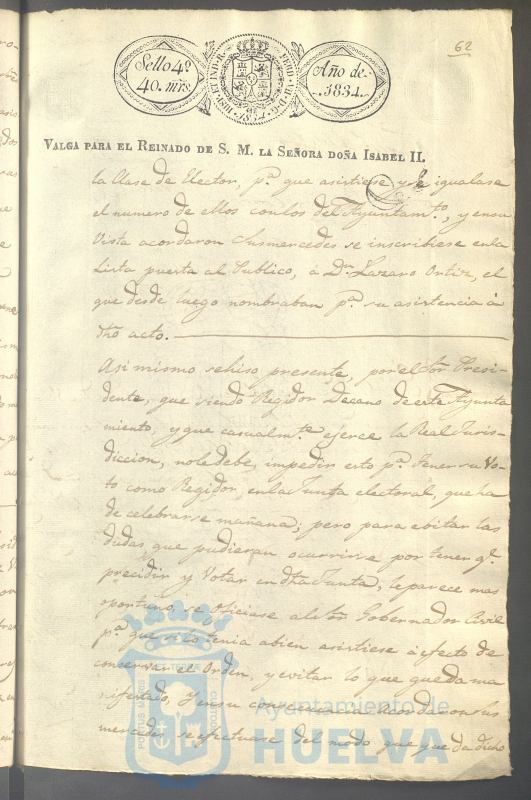 62
Sello 4º
40. mrs.
HISP. ET IND. R.
FERD. VII. D. G.
1834
Año de
1834.
VALGA PARA EL REINADO DE S. M. LA SEÑORA DOÑA ISABEL II.
la Clase de Elector, pª que asistiese y se igualase
el numero de ellos con los del Ayuntamto, y en su
Vista acordaron Sus mercedes se inscribiese en la
Lista puesta al Publico, á Dn Lazaro Ortiz, el
que desde luego nombraban pª su asistencia á
dho acto.
Asi mismo se hiso presente, por el Sor Presi-
dente, que siendo Regidor Decano de este Ayunta
miento, y que casualmte ejerce la Real Juris-
diccion, no le debe, impedir esto pª Tener su Vo-
to como Regidor, en la Junta electoral, que ha
de celebrarse mañana; pero para ebitar las
dudas que pudieran ocurrirse por tener qe
precidir y Votar en dha Junta, le parece mas
oportuno, se Oficiase al Sor Gobernador Civil
pª que si lo tenia a bien asistiese á efecto de
conservar el Orden, y evitar lo que queda ma
nifestado, Y en su consecuencia Acordaron Sus
mercedes se efectuase del modo que queda dicho
PORTUS MARIS ET TERRE CUSTODIA
Ayuntamiento de
HUELVA